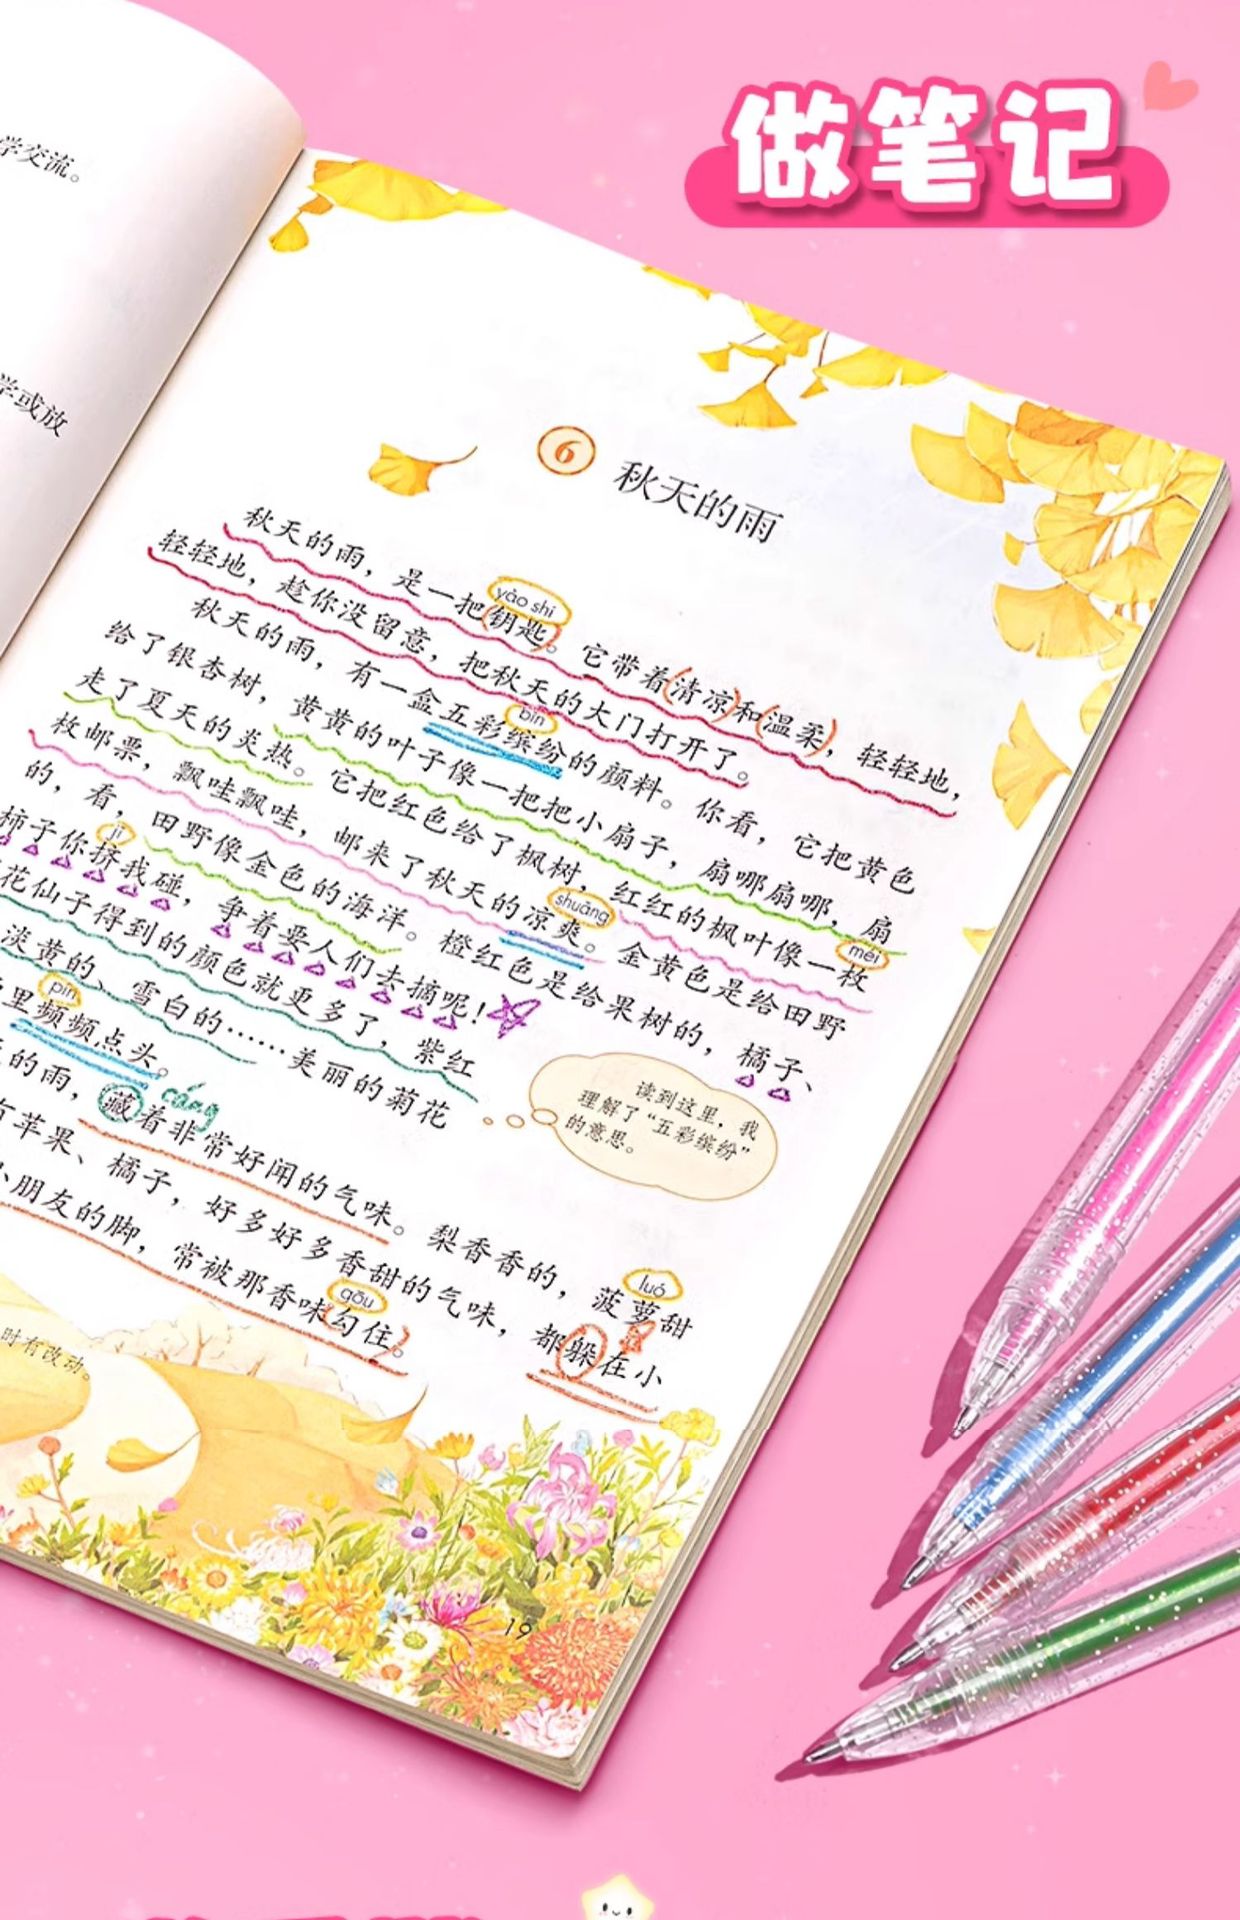 做笔记
学交流。
学或放
6 秋天的雨
yào shi
秋天的雨，是一把钥匙。它带着清凉和温柔，轻轻地，
轻轻地，趁你没留意，把秋天的大门打开了。
bīn
秋天的雨，有一盒五彩缤纷的颜料。你看，它把黄色
给了银杏树，黄黄的叶子像一把把小扇子，扇哪扇哪，扇
méi
走了夏天的炎热。它把红色给了枫树，红红的枫叶像一枚
shuǎng
枚邮票，飘哇飘哇，邮来了秋天的凉爽。金黄色是给田野
的，看，田野像金色的海洋。橙红色是给果树的，橘子、
jǐ
柿子你挤我碰，争着要人们去摘呢！
花仙子得到的颜色就更多了，紫红
淡黄的、雪白的……美丽的菊花
pín
里频频点头。
cáng
的雨，藏着非常好闻的气味。梨香香的，菠萝甜
luó
有苹果、橘子，好多好多香甜的气味，都躲在小
gōu
小朋友的脚，常被那香味勾住。
读到这里，我
理解了“五彩缤纷”
的意思。
时有改动。
19